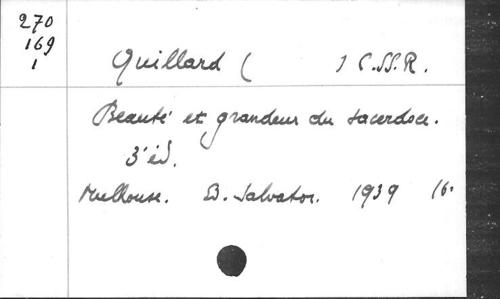 270
169
1
Quillard ( ) C.SS.R.
Beauté et grandeur du sacerdoce.
3' éd.
Mulhouse. Salvator. 1939 16°